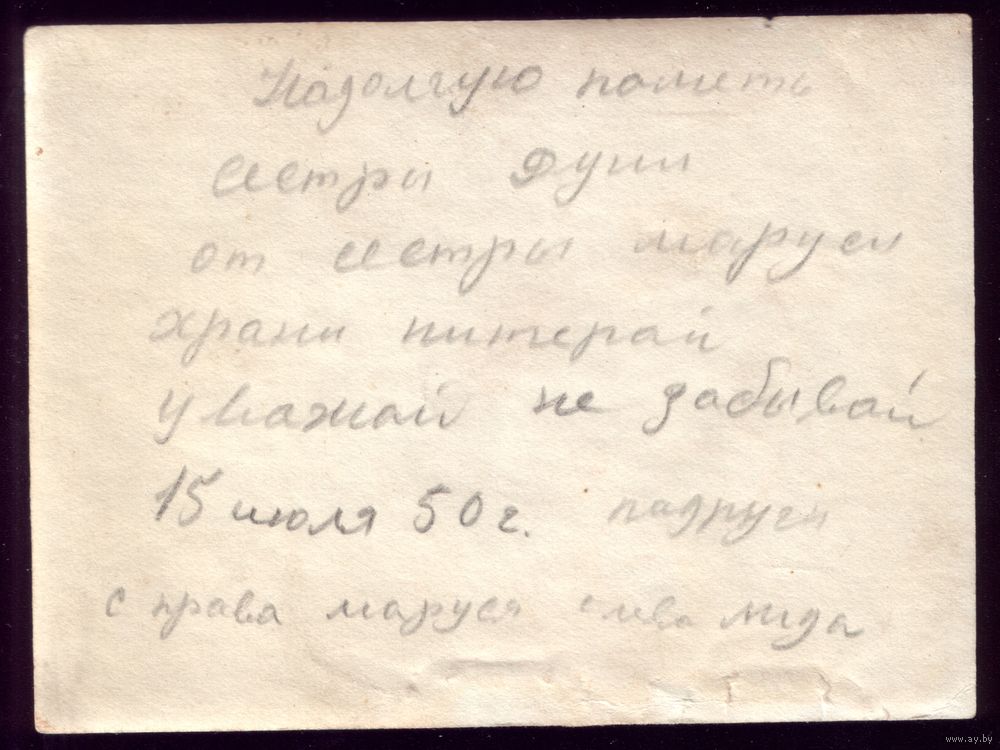 Надолгую пометь
сестры Дуни
от сестры маруси
храни нитерай
уважай не забывай
15 июля 50 г. падруги
с права маруся слева лида
www.ay.by